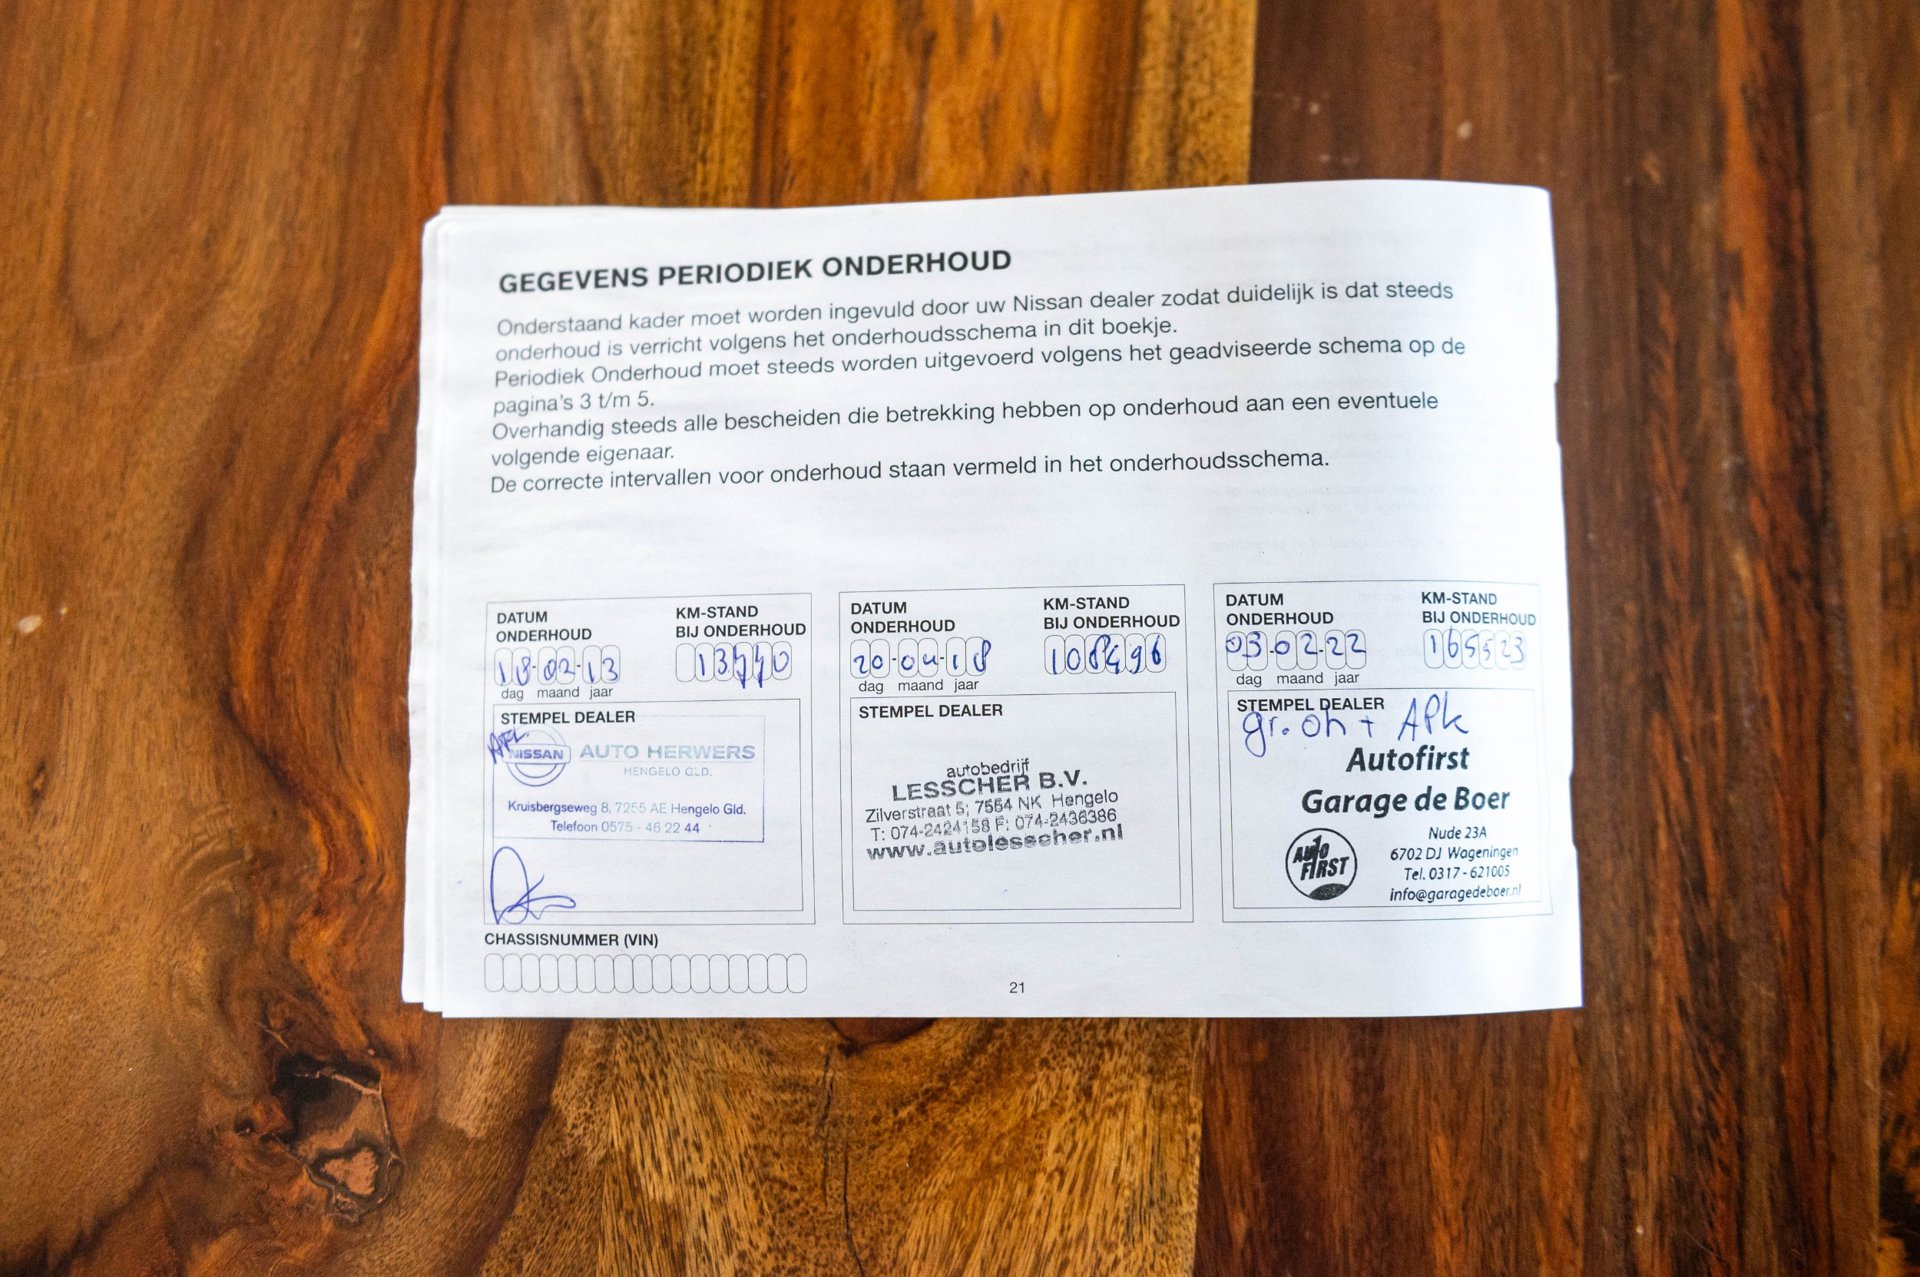 GEGEVENS PERIODIEK ONDERHOUD
Onderstaand kader moet worden ingevuld door uw Nissan dealer zodat duidelijk is dat steeds
onderhoud is verricht volgens het onderhoudsschema in dit boekje.
Periodiek Onderhoud moet steeds worden uitgevoerd volgens het geadviseerde schema op de
pagina's 3 t/m 5.
Overhandig steeds alle bescheiden die betrekking hebben op onderhoud aan een eventuele
volgende eigenaar.
De correcte intervallen voor onderhoud staan vermeld in het onderhoudsschema.
DATUM
ONDERHOUD
KM-STAND
BIJ ONDERHOUD
18-02-13
dag maand jaar
STEMPEL DEALER
NISSAN
AUTO HERWERS
HENGELO GLD.
Kruisbergseweg 8, 7255 AE Hengelo Gld.
Telefoon 0575 - 46 22 44
DATUM
ONDERHOUD
KM-STAND
BIJ ONDERHOUD
20-04-18
108496
dag maand jaar
STEMPEL DEALER
autobedrijf
LESSCHER B.V.
Zilverstraat 5; 7554 NK Hengelo
T: 074-2424158 F: 074-2436386
www.autolesscher.nl
DATUM
ONDERHOUD
KM-STAND
BIJ ONDERHOUD
03-02-22
165523
dag maand jaar
STEMPEL DEALER
gr. oh + APK
Autofirst
Garage de Boer
AUTO
FIRST
Nude 23A
6702 DJ Wageningen
Tel. 0317 - 621005
info@garagedeboer.nl
CHASSISNUMMER (VIN)
21